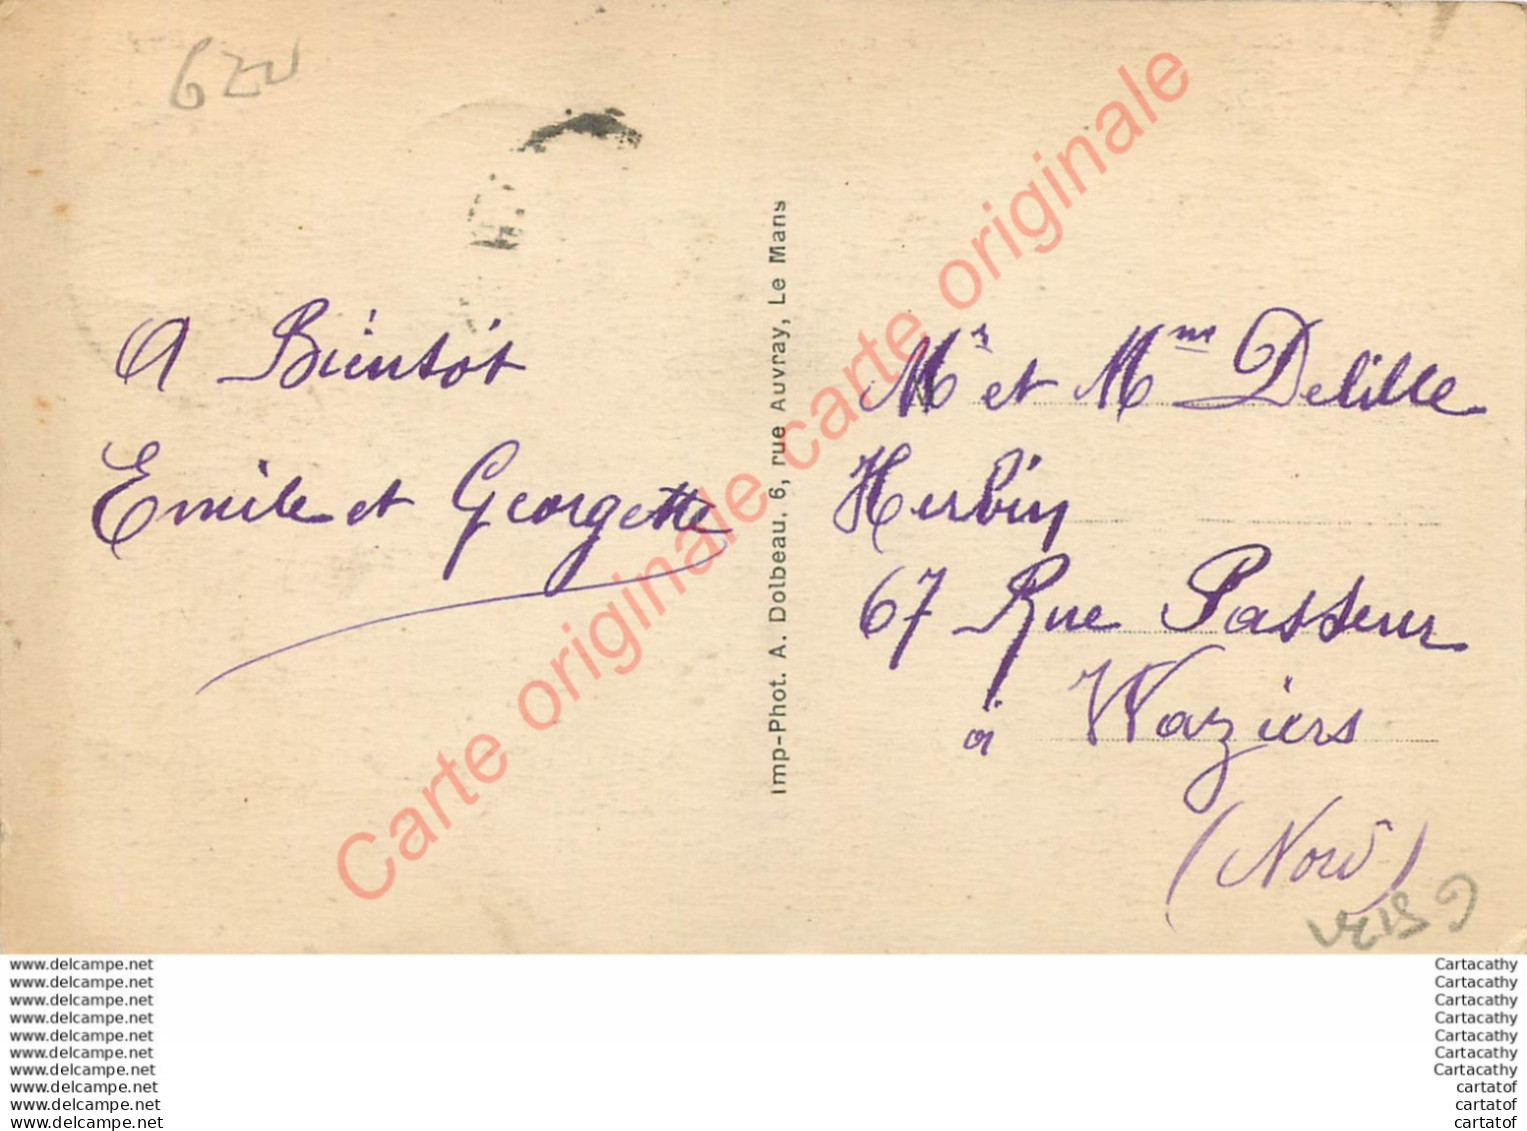 A Bientôt
Emile et Georgette
Imp-Phot. A. Dolbeau, 6, rue Auvray, Le Mans
Mr et Mme Delille
Herbin
67 Rue Pasteur
à Waziers
(Nord)
Carte originale carte originale
www.delcampe.net
www.delcampe.net
www.delcampe.net
www.delcampe.net
www.delcampe.net
www.delcampe.net
www.delcampe.net
www.delcampe.net
www.delcampe.net
www.delcampe.net
Cartacathy
Cartacathy
Cartacathy
Cartacathy
Cartacathy
Cartacathy
Cartacathy
cartatof
cartatof
cartatof